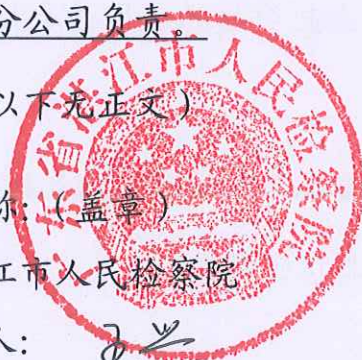 分公司负责。
以下无正文）
称：（盖章）
江市人民检察院
人：
东省廉江市人民检察院